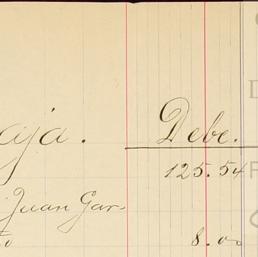 aja. Debe.
125.54
Juan Gar-
8.00